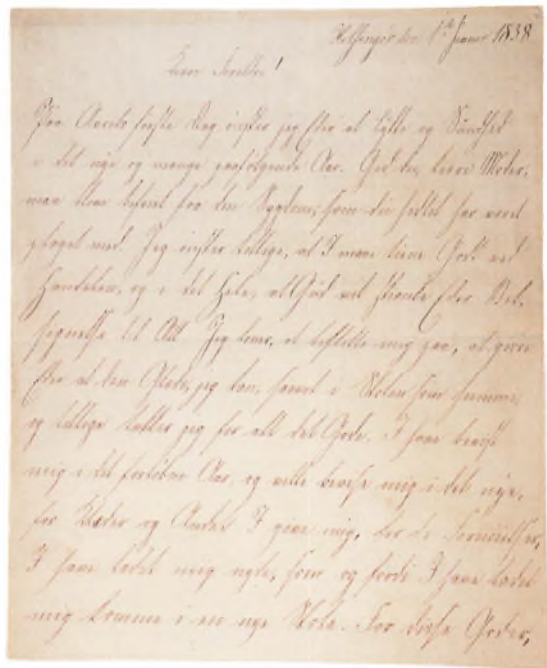 Helsingør den 1ste Januar 1838
Kjere Forældre!
Paa Aarets første Dag ønsker jeg Eder al Lykke og Sundhed
i det nye og mange paafølgende Aar. Gid du, kjere Moder,
maa blive befriet fra den Sygdom, som du har været
plaget med. Jeg ønsker tillige, at I maae tiene Godt ved
Handelen, og i det Hele, at Gud vil skienke Eder Vel-
signelse til Alt. Jeg lover, at beflitte mig paa, at giøre
Eder al den Glæde, jeg kan, saavel i Skolen som hjemme,
og tillige takker jeg for alt det Gode, I have beviist
mig i det forløbne Aar, og ville bevise mig i det nye,
for Klæder og Andet I give mig, for de Fornøielser,
I have ladet mig nyde, som og fordi I have ladet
mig komme i en nye Skole. For disse Goder,